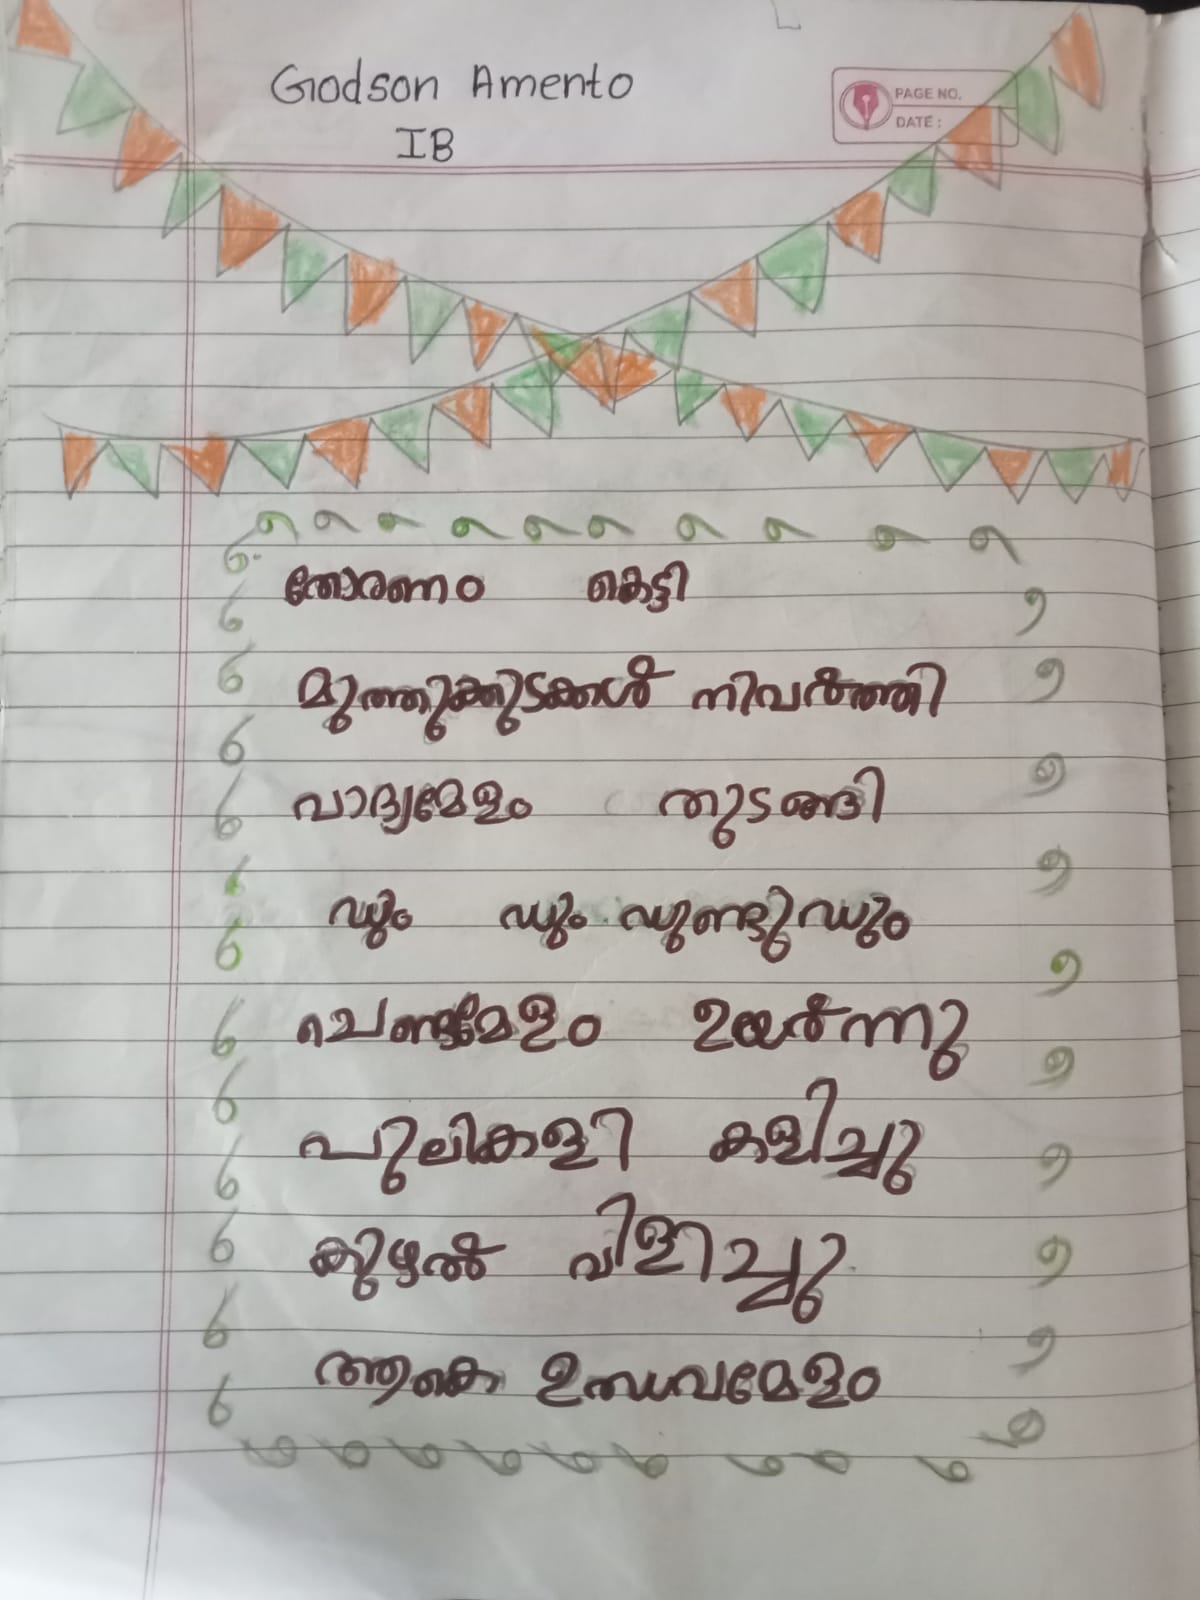 Godson Amento
IB
PAGE NO.
DATE :
തോരണം കെട്ടി
മുത്തുക്കുടക്കൾ നിവർത്തി
വാദ്യമേളം തുടങ്ങി
ഡും ഡും ഡുണ്ടുഡും
ചെണ്ടമേളം ഉയർന്നു
പുലികളി കളിച്ചു
കുഴൽ വിളിച്ചു
ആകെ ഉത്സവമേളം